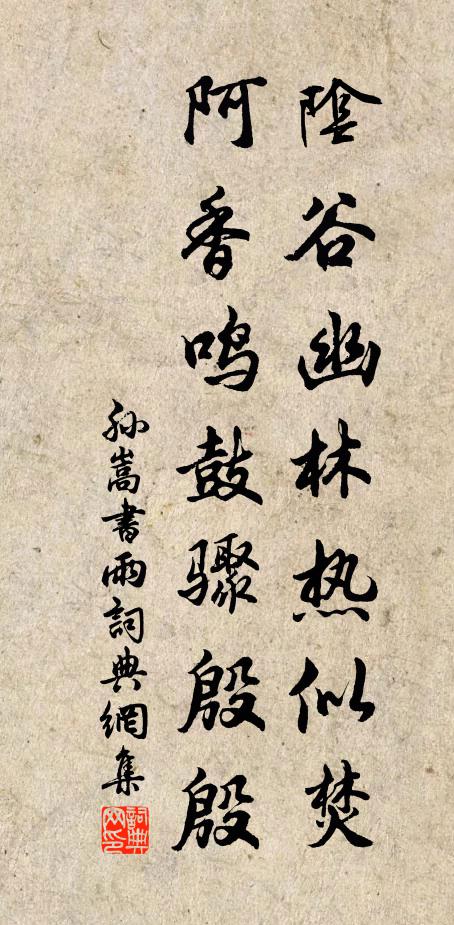 陰谷幽林热似焚
阿香鸣鼓骤殷殷
孙嵩書雨詞典網集
詞典网印